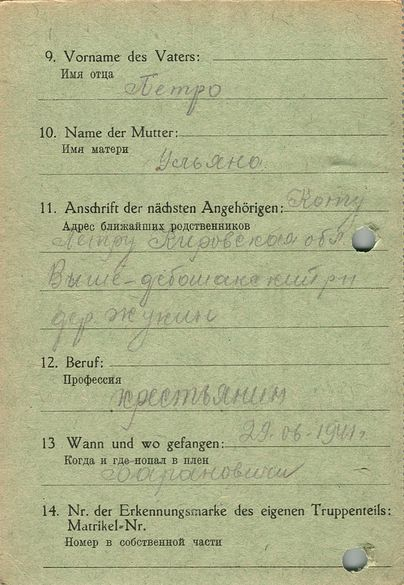 9. Vorname des Vaters:
Имя отца
Петро
10. Name der Mutter:
Имя матери
Ульяна
11. Anschrift der nächsten Angehörigen: Коту
Адрес ближайших родственников
Петру Кировская обл
дер. Жукин
12. Beruf:
Профессия
крестьянин
13 Wann und wo gefangen: 29. 06. 1941 г
Когда и где попал в плен
Барановичи
14. Nr. der Erkennungsmarke des eigenen Truppenteils:
Matrikel-Nr.
Номер в собственной части